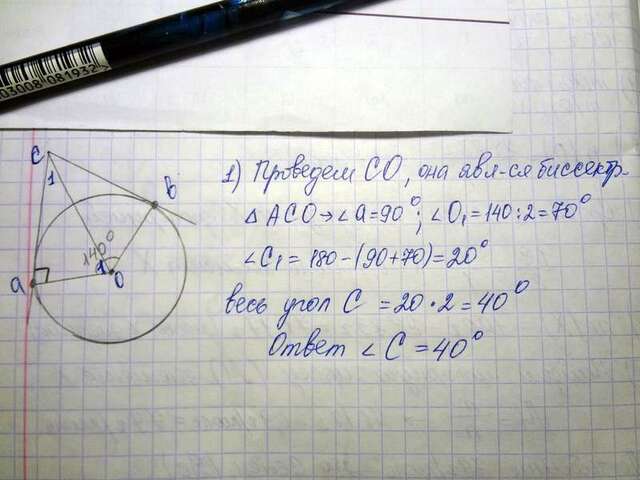 03008 081932
C
1
B
140°
1
O
a
1) Проведем СО, она явл-ся биссектр.
Δ АСО → ∠a=90°; ∠O₁=140:2=70°
∠C₁ = 180-(90+70)=20°
весь угол С = 20·2=40°
Ответ ∠С=40°